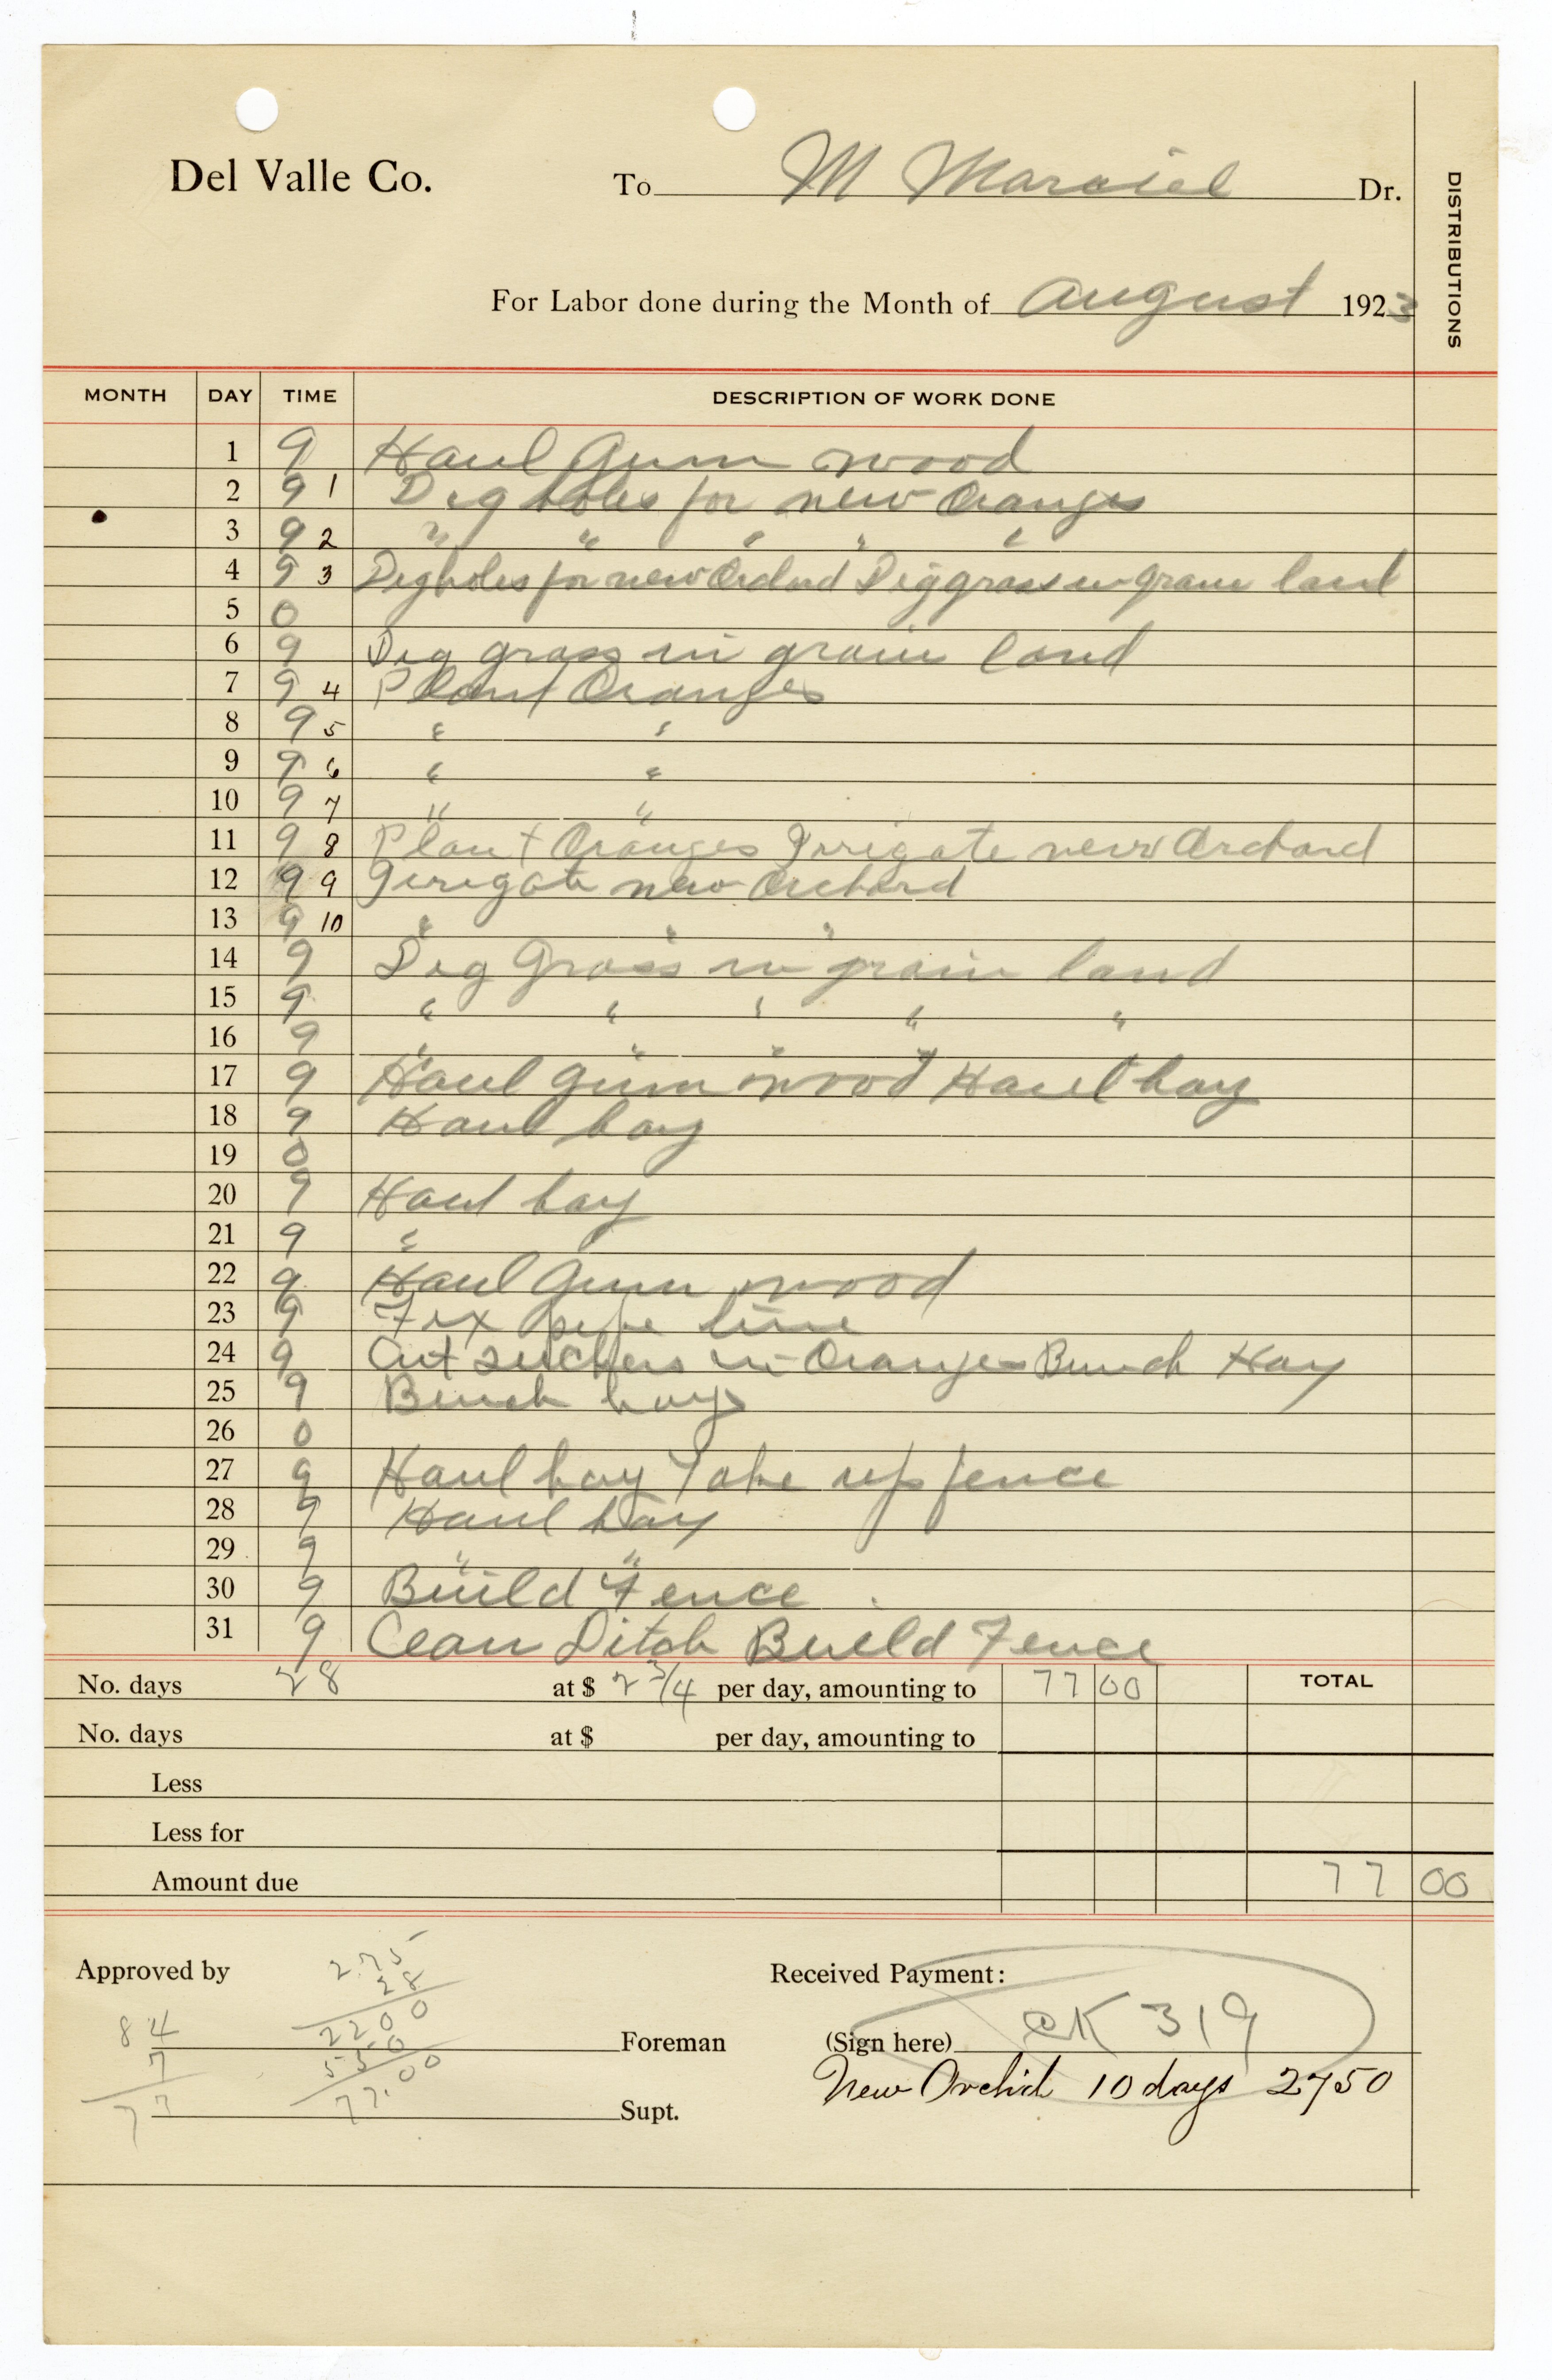 Del Valle Co. To M Marciel Dr.
DISTRIBUTIONS
For Labor done during the Month of August 1923
MONTH DAY TIME DESCRIPTION OF WORK DONE
1 9 Haul Gum wood
2 9 1 Dig holes for new Oranges
3 9 2 " " " " "
4 9 3 Dig holes for new Orchard Dig grass in grain land
5 0
6 9 Dig grass in grain land
7 9 4 Plant Oranges
8 9 5 " "
9 9 6 " "
10 9 7 " "
11 9 8 Plant Oranges Irrigate new Orchard
12 9 9 Irrigate new Orchard
13 9 10 " " "
14 9 Dig Grass in grain land
15 9 " " " " "
16 9 " " " "
17 9 Haul gum wood Haul hay
18 9 Haul hay
19 0
20 9 Haul hay
21 9 "
22 9 Haul Gum wood
23 9 Fix pipe line
24 9 Cut suckers in Oranges Bunch Hay
25 9 Bunch hay
26 0
27 9 Haul hay Take up fence
28 9 Haul hay
29 9 " "
30 9 Build Fence
31 9 Clean Ditch Build Fence
No. days 28 at $ 2 3/4 per day, amounting to 77 00 TOTAL
No. days at $ per day, amounting to
Less
Less for
Amount due 77 00
Approved by 2.75 Received Payment:
28
84 2200 Foreman (Sign here) CK 319
7 550
77 77.00 Supt. New Orchid 10 days 2750